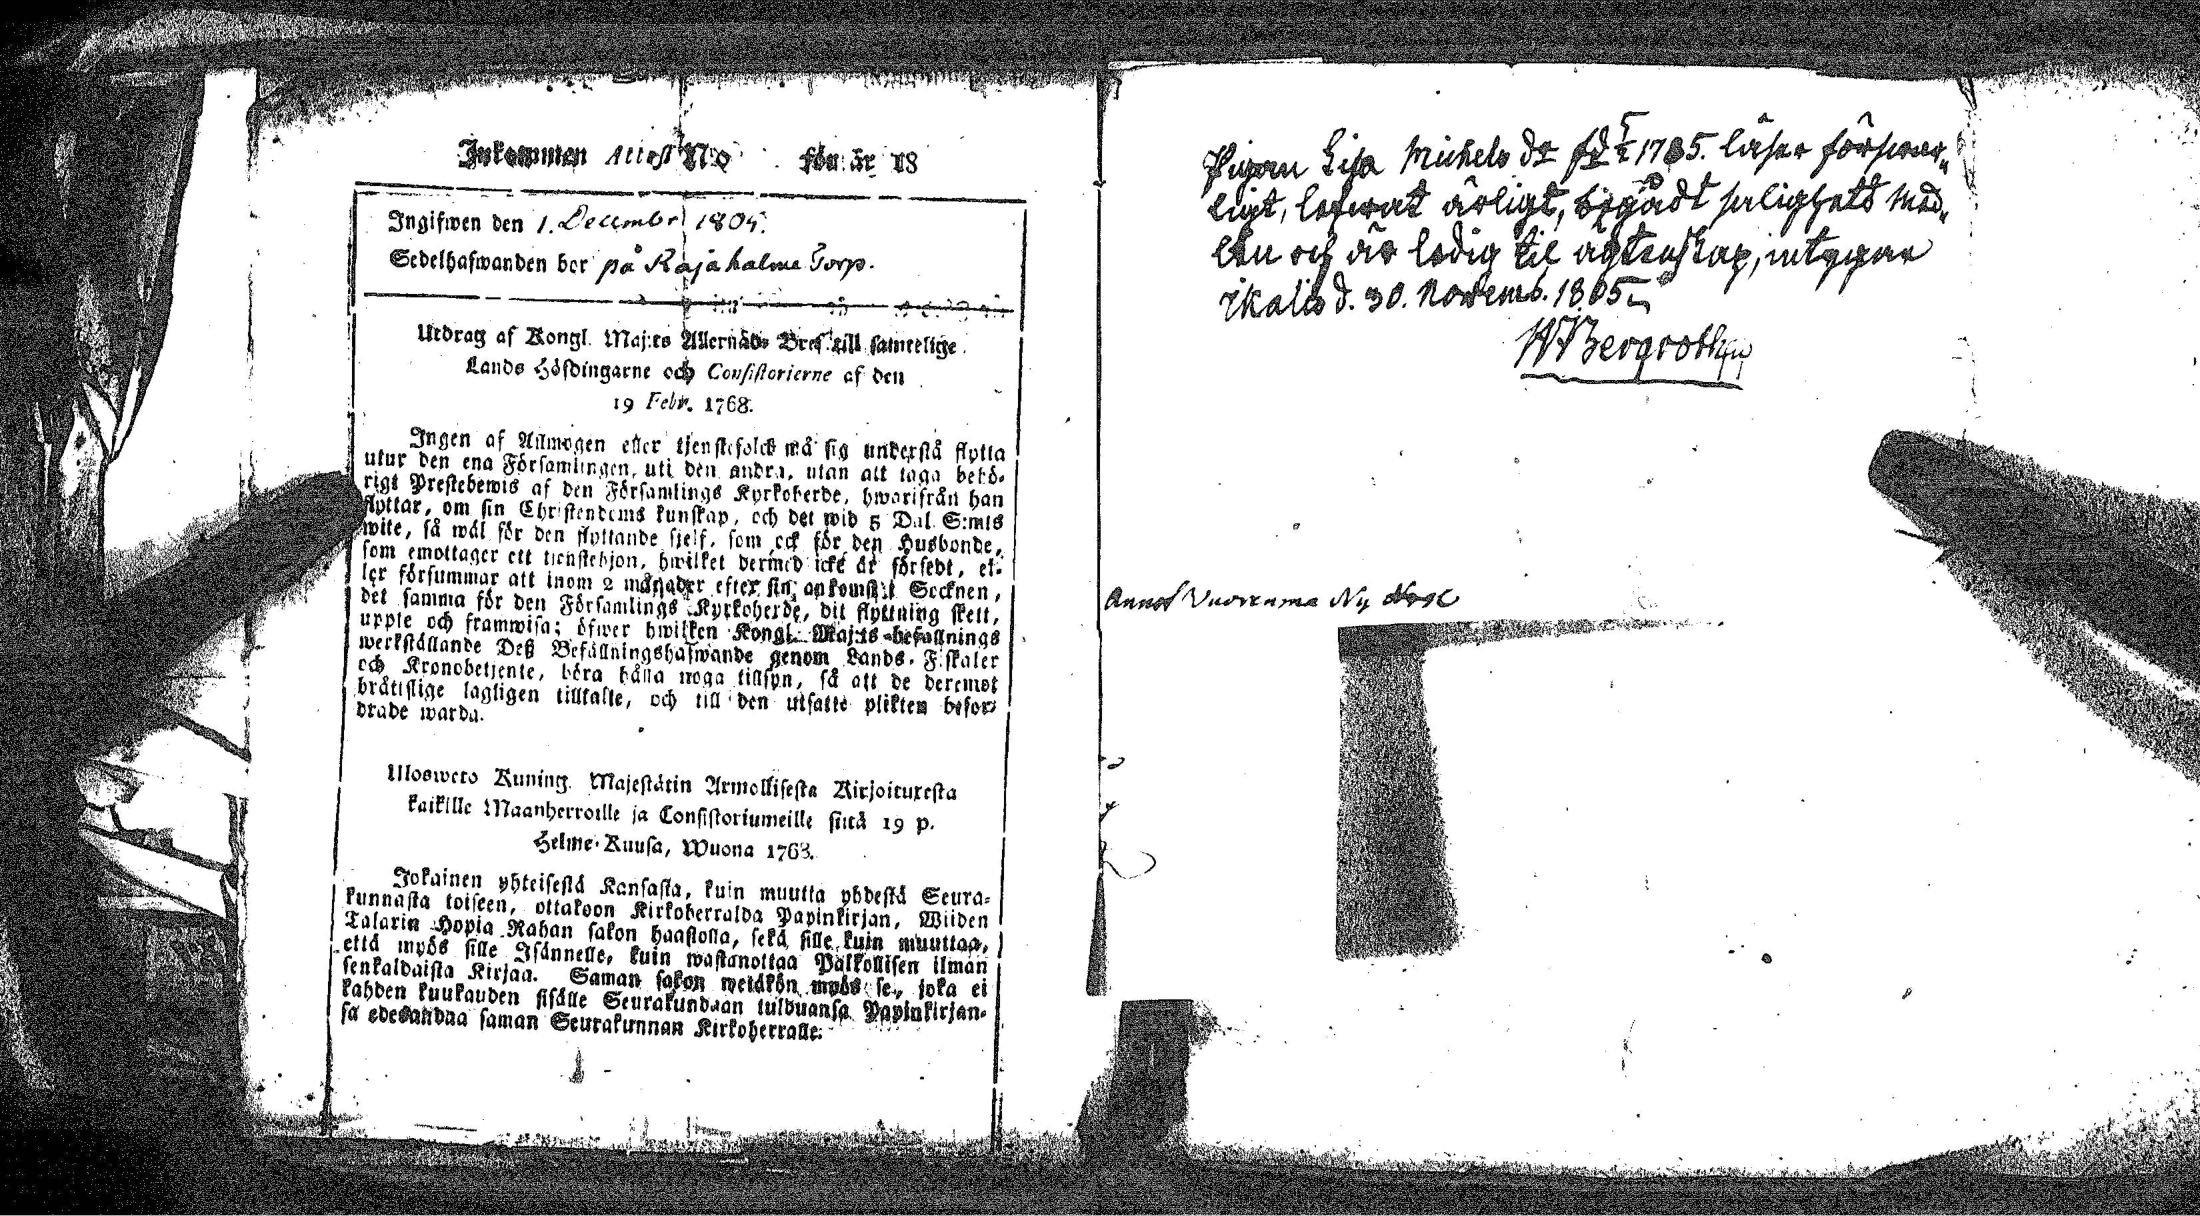 Inkommen Attest No för år 18
Ingifwen den 1. Decembr 1805.
Sedelhafwanden bor på Rajahalme Torp.
Utdrag af Kongl. Maj:ts Allernåd. Bref till samtelige
Lands Höfdingarne och Consistorierne af den
19 Febr. 1768.
Ingen af Allmogen eller tjenstefolck må sig understå flytta
utur den ena Församlingen, uti den andra, utan att taga behö-
rigt Prestebewis af den Församlings Kyrkoherde, hwarifrån han
flyttar, om sin Christendoms kunskap, och det wid 5 Dal. S:mts
wite, så wäl för den flyttande sjelf, som ock för den Husbonde,
som emottager ett tienstehjon, hwilket dermed icke är försedt, el-
ler försummar att inom 2 månader efter sin ankomst i Socknen,
det samma för den Församlings Kyrkoherde, dit flyttning skett,
uppte och framwisa; öfwer hwilken Kongl. Maj:ts befallnings
werkställande Deß Befallningshafwande genom Lands-Fiskaler
och Kronobetjente, böra hålla noga tillsyn, så att de deremot
bråttslige lagligen tilltalte, och till den utsatte plikten befor-
drade warda.
Ulosweto Kuning. Majestätin Armollisesta Kirjoituxesta
kaikille Maanherroille ja Consistoriumeille siitä 19 p.
Helme-Kuusa, Wuona 1768.
Jokainen yhteisestä Kansasta, kuin muutta yhdestä Seura-
kunnasta toiseen, ottakoon Kirkoherralda Papinkirjan, Wiiden
Talarin Hopia Rahan sakon haastolla, sekä sille kuin muuttaa,
että myös sille Isännelle, kuin wastanottaa Palkollisen ilman
senkaldaista Kirjaa. Saman sakon wetäkön myös se, joka ei
kahden kuukauden sisälle Seurakundaan tulduansa Papinkirjan-
sa edesandaa saman Seurakunnan Kirkoherralle.
Pigan Lisa Michels dr fd 5/2 1785. läser förswar-
ligt, lefwat ärligt, begådt salighets med-
len och är ledig til ägtenskap, intygar
Ikalis d. 30. Novemb. 1805
Bergroth